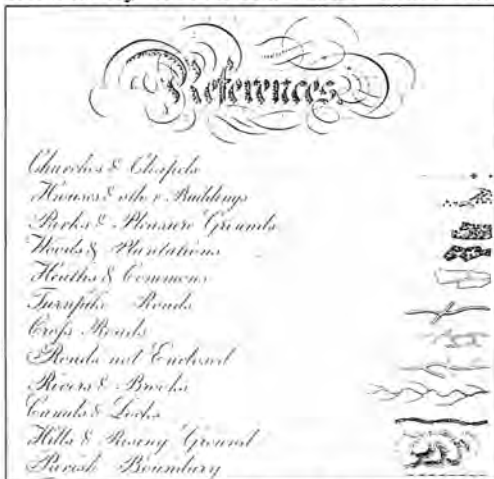 References.
Churches & Chapels
Houses & other Buildings
Parks & Pleasure Grounds
Woods & Plantations
Heaths & Commons
Turnpike Roads
Cross Roads
Roads not Enclosed
Rivers & Brooks
Canals & Locks
Hills & Rising Ground
Parish Boundary